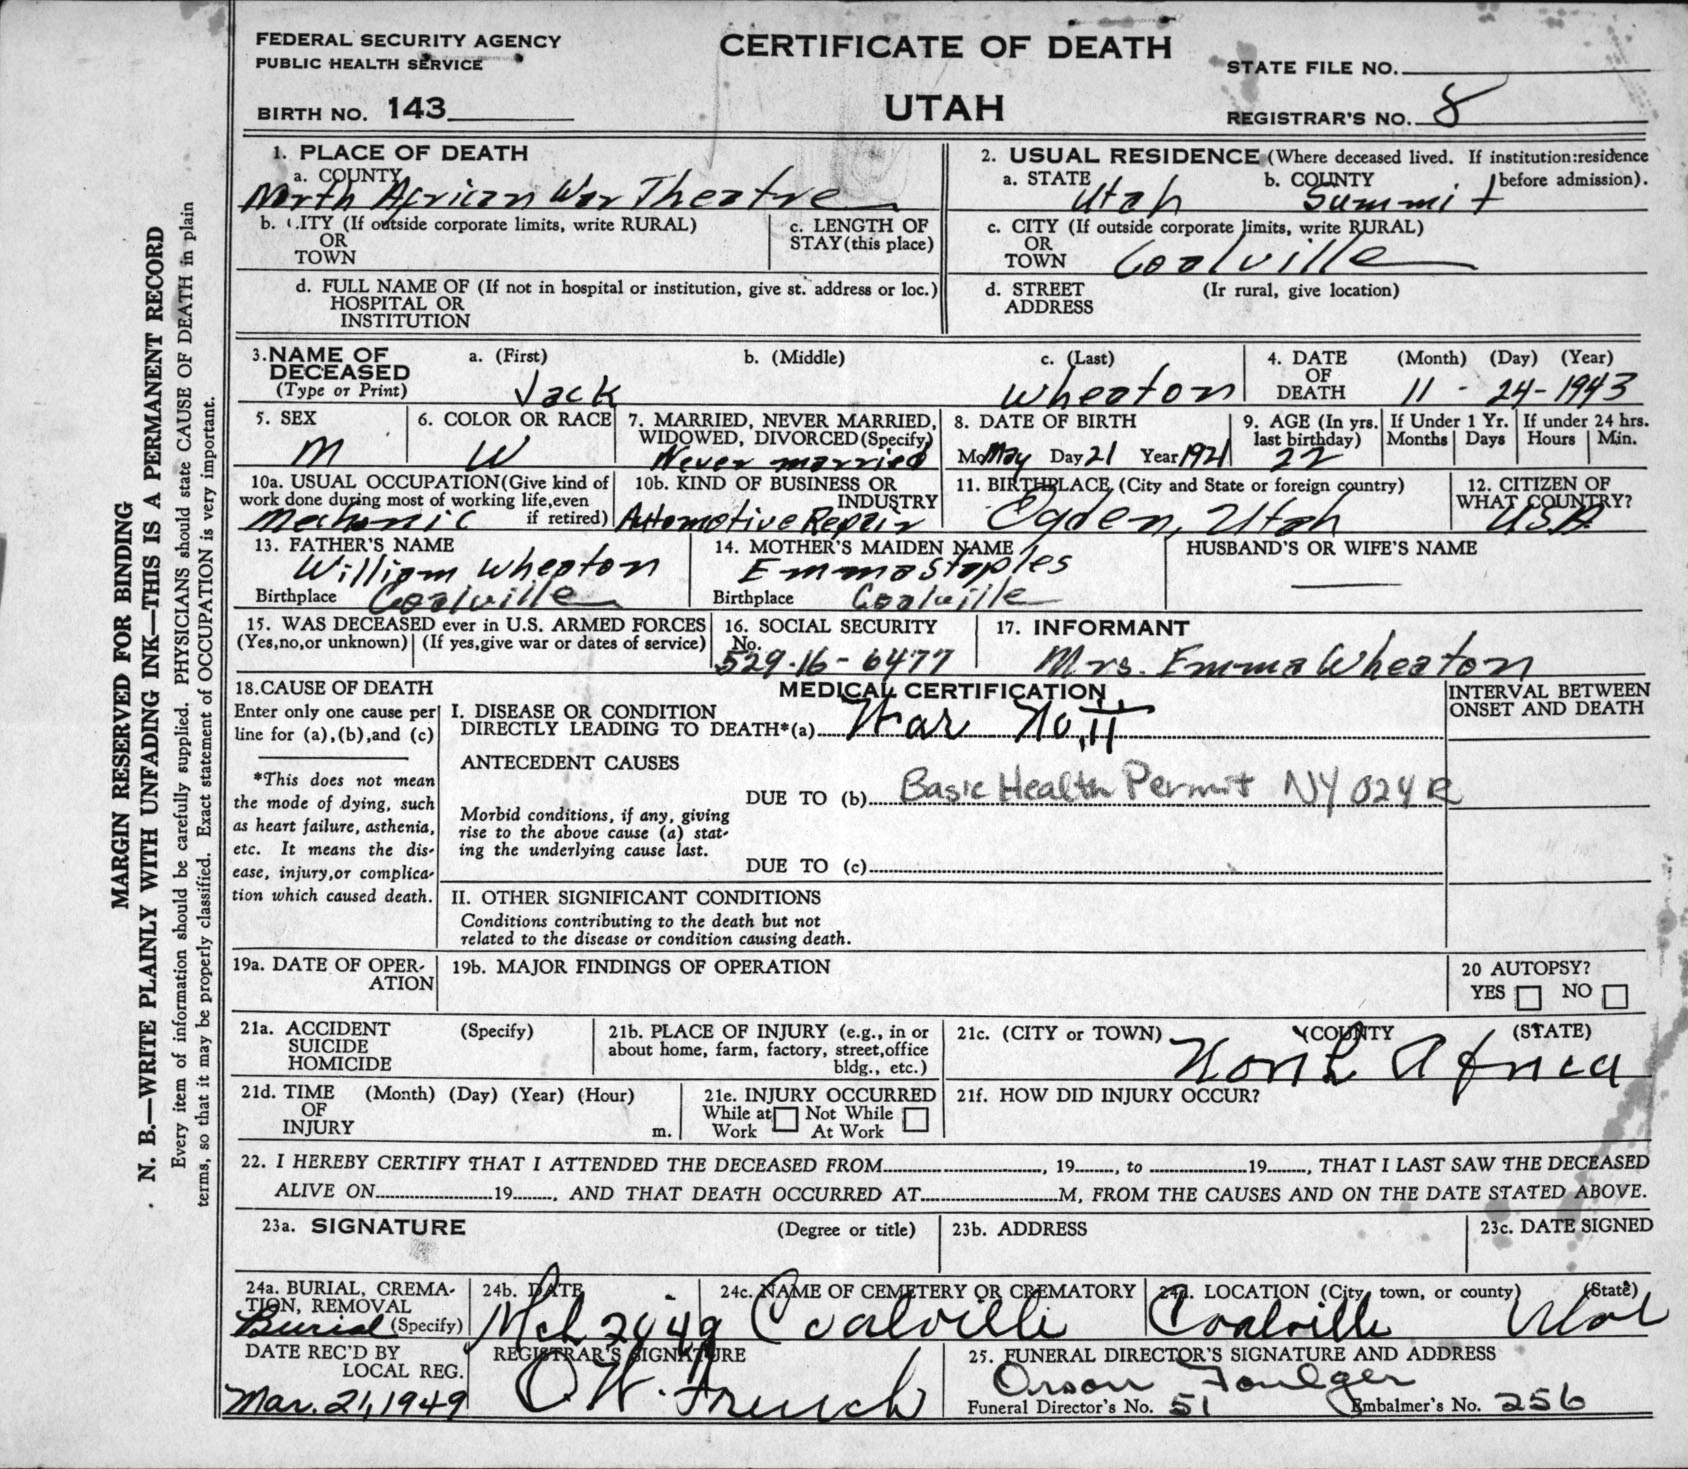 FEDERAL SECURITY AGENCY
PUBLIC HEALTH SERVICE
BIRTH NO. 143
CERTIFICATE OF DEATH
UTAH
STATE FILE NO.
REGISTRAR'S NO. 8
MARGIN RESERVED FOR BINDING
N. B.—WRITE PLAINLY WITH UNFADING INK—THIS IS A PERMANENT RECORD
Every item of information should be carefully supplied. PHYSICIANS should state CAUSE OF DEATH in plain
terms, so that it may be properly classified. Exact statement of OCCUPATION is very important.
1. PLACE OF DEATH
a. COUNTY
North African War Theatre
b. CITY (If outside corporate limits, write RURAL)
OR
TOWN
c. LENGTH OF
STAY (this place)
d. FULL NAME OF (If not in hospital or institution, give st. address or loc.)
HOSPITAL OR
INSTITUTION
2. USUAL RESIDENCE (Where deceased lived. If institution:residence
before admission).
a. STATE Utah b. COUNTY Summit
c. CITY (If outside corporate limits, write RURAL)
OR
TOWN Coalville
d. STREET (Ir rural, give location)
ADDRESS
3. NAME OF
DECEASED
(Type or Print)
a. (First) b. (Middle) c. (Last)
Jack Wheaton
4. DATE
OF
DEATH
(Month) (Day) (Year)
11 - 24 - 1943
5. SEX
M
6. COLOR OR RACE
W
7. MARRIED, NEVER MARRIED,
WIDOWED, DIVORCED (Specify)
Never married
8. DATE OF BIRTH
Mo May Day 21 Year 1921
9. AGE (In yrs.
last birthday)
22
If Under 1 Yr.
Months Days
If under 24 hrs.
Hours Min.
10a. USUAL OCCUPATION (Give kind of
work done during most of working life,even
if retired)
Mechanic
10b. KIND OF BUSINESS OR
INDUSTRY
Automotive Repair
11. BIRTHPLACE (City and State or foreign country)
Ogden, Utah
12. CITIZEN OF
WHAT COUNTRY?
USA
13. FATHER'S NAME
William Wheaton
Birthplace Coalville
14. MOTHER'S MAIDEN NAME
Emma Staples
Birthplace Coalville
HUSBAND'S OR WIFE'S NAME
15. WAS DECEASED ever in U.S. ARMED FORCES
(Yes,no,or unknown) (If yes,give war or dates of service)
16. SOCIAL SECURITY
No.
529-16-6477
17. INFORMANT
Mrs. Emma Wheaton
18.CAUSE OF DEATH
Enter only one cause per
line for (a),(b),and (c)
*This does not mean
the mode of dying, such
as heart failure, asthenia,
etc. It means the dis-
ease, injury,or complica-
tion which caused death.
MEDICAL CERTIFICATION
I. DISEASE OR CONDITION
DIRECTLY LEADING TO DEATH*(a) War No. II
ANTECEDENT CAUSES
DUE TO (b) Basic Health Permit NY 024 R
Morbid conditions, if any, giving
rise to the above cause (a) stat-
ing the underlying cause last.
DUE TO (c)
II. OTHER SIGNIFICANT CONDITIONS
Conditions contributing to the death but not
related to the disease or condition causing death.
INTERVAL BETWEEN
ONSET AND DEATH
19a. DATE OF OPER-
ATION
19b. MAJOR FINDINGS OF OPERATION
20 AUTOPSY?
YES NO
21a. ACCIDENT (Specify)
SUICIDE
HOMICIDE
21b. PLACE OF INJURY (e.g., in or
about home, farm, factory, street,office
bldg., etc.)
21c. (CITY or TOWN) (COUNTY (STATE)
North Africa
21d. TIME (Month) (Day) (Year) (Hour)
OF
INJURY m.
21e. INJURY OCCURRED
While at Not While
Work At Work
21f. HOW DID INJURY OCCUR?
22. I HEREBY CERTIFY THAT I ATTENDED THE DECEASED FROM , 19 , to 19 , THAT I LAST SAW THE DECEASED
ALIVE ON 19 , AND THAT DEATH OCCURRED AT M, FROM THE CAUSES AND ON THE DATE STATED ABOVE.
23a. SIGNATURE (Degree or title)
23b. ADDRESS
23c. DATE SIGNED
24a. BURIAL, CREMA-
TION, REMOVAL
Burial (Specify)
24b. DATE
24c. NAME OF CEMETERY OR CREMATORY
Coalville
24d. LOCATION (City, town, or county) (State)
Coalville Utah
DATE REC'D BY
LOCAL REG.
Mar. 21, 1949
REGISTRAR'S SIGNATURE
O.W. French
25. FUNERAL DIRECTOR'S SIGNATURE AND ADDRESS
Orson Foulger
Funeral Director's No. 51 Embalmer's No. 256